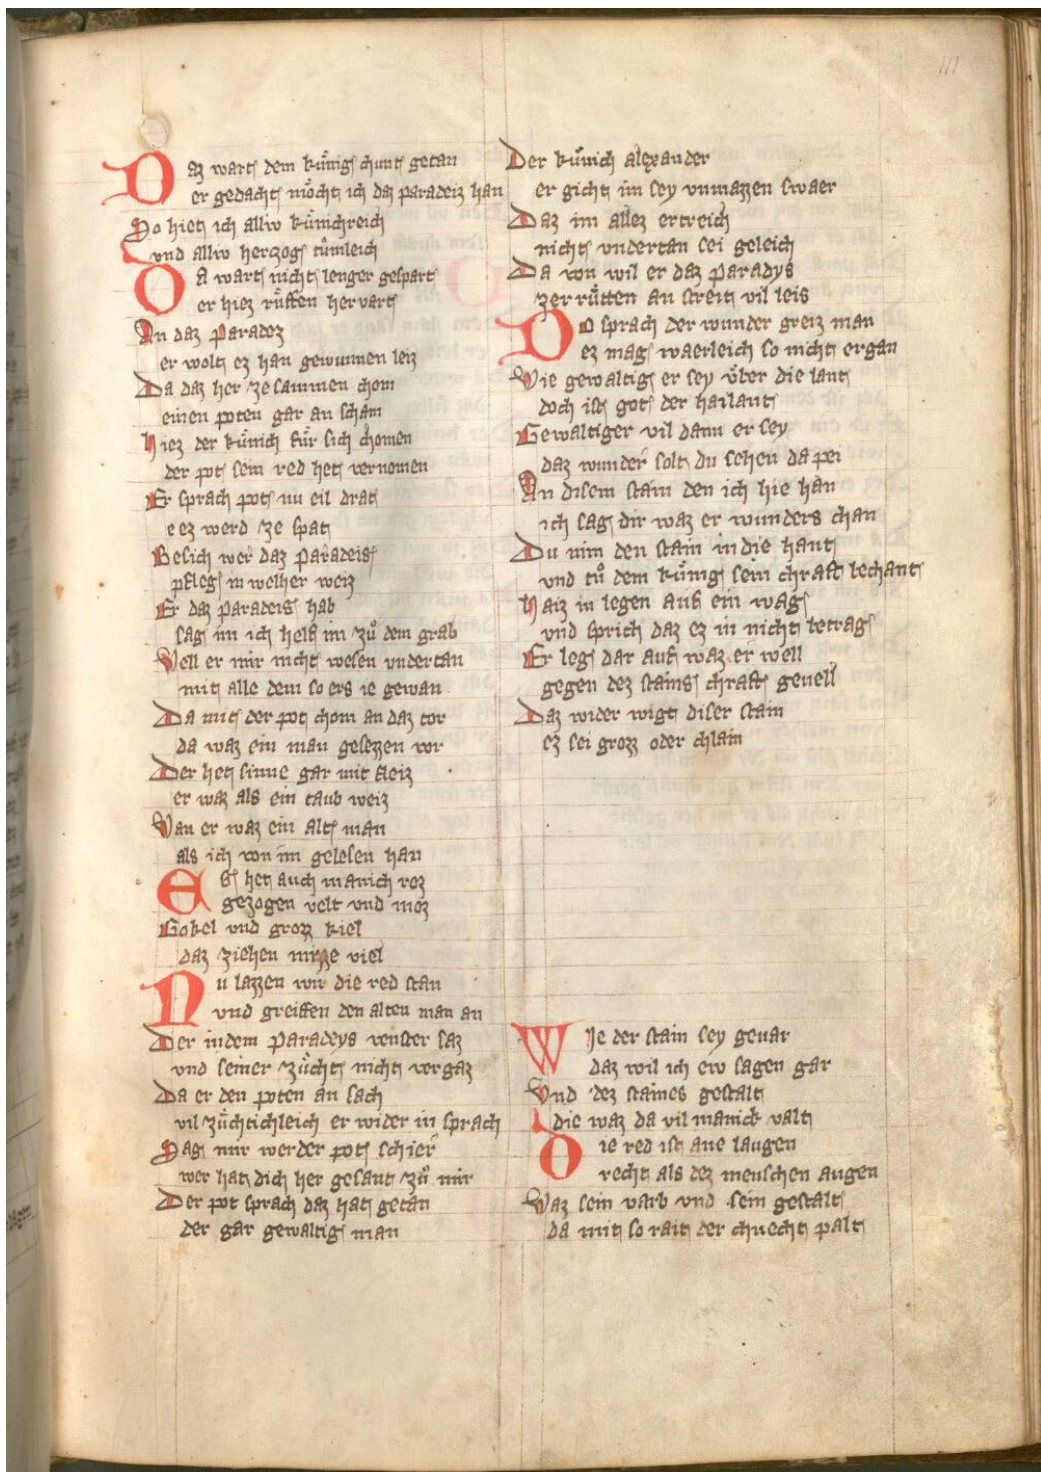 111
Daz wart dem kůnig chunt getan
er gedacht mocht ich daz paradeiz han
So hiet ich alliv kůnichreich
vnd alliv herczog tůmleich
Da wart nicht lenger gespart
er hiez růffen hervart
An daz paradez
er wolt ez han gewunnen leiz
Da daz her ze sammen chom
einen poten gar an scham
hiez der kůnich fůr sich chomen
der pot sein red het vernomen
Er sprach pot nu eil drat
e ez werd ze spat
Besich wer daz paradeis
pfleg in welher weiz
Er daz paradeis hab
sag im ich helf im zů dem grab
Well er mir nicht wesen vndertan
mit alle dem so ers ie gewan
Da mit der pot chom an daz tor
da waz ein man gesezzen vor
Der het sinne gar mit fleiz
er waz als ein taub weiz
Wan er waz ein alt man
als ich von im gelesen han
Es het auch manich roz
gezogen velt vnd moz
Gokel vnd grozz kiel
daz ziehen mirze viel
Nu lazzen wir die red stan
vnd greiffen den alten man an
Der indem paradeys venster saz
vnd seiner zůcht nicht vergaz
Da er den poten an sach
vil zůchtichleich er wider in sprach
Sag mir werder pot schier
wer hat dich her gesant zů mir
Der pot sprach daz hat getan
der gar gewaltig man
Der kůnich alexander
er gicht im sey vnmazzen swaer
Daz im allez ertreich
nicht vndertan sei geleich
Da von wil er daz paradys
zerrůtten an streit vil leis
Do sprach der wunder greiz man
ez mag waerleich so nicht ergan
Wie gewaltig er sey ůber die lant
doch ist got der hailant
Gewaltiger vil dann er sey
daz wunder solt du sehen da pei
An disem stain den ich hie han
ich sag dir waz er wunders chan
Du nim den stain in die hant
vnd tů dem kůnig sein chraft bechant
haiz in legen auf ein wag
vnd sprich daz ez in nicht betrag
Er leg dar auf waz er well
gegen dez stains chraft geuell
Daz wider wigt diser stain
ez sei grozz oder chlain
Wie der stain sey geuar
daz wil ich ew sagen gar
Vnd dez staines gestalt
die waz da vil manick valt
Die red ist ane laugen
recht als dez menschen augen
Waz sein varb vnd sein gestalt
da mit so rait der chnecht palt